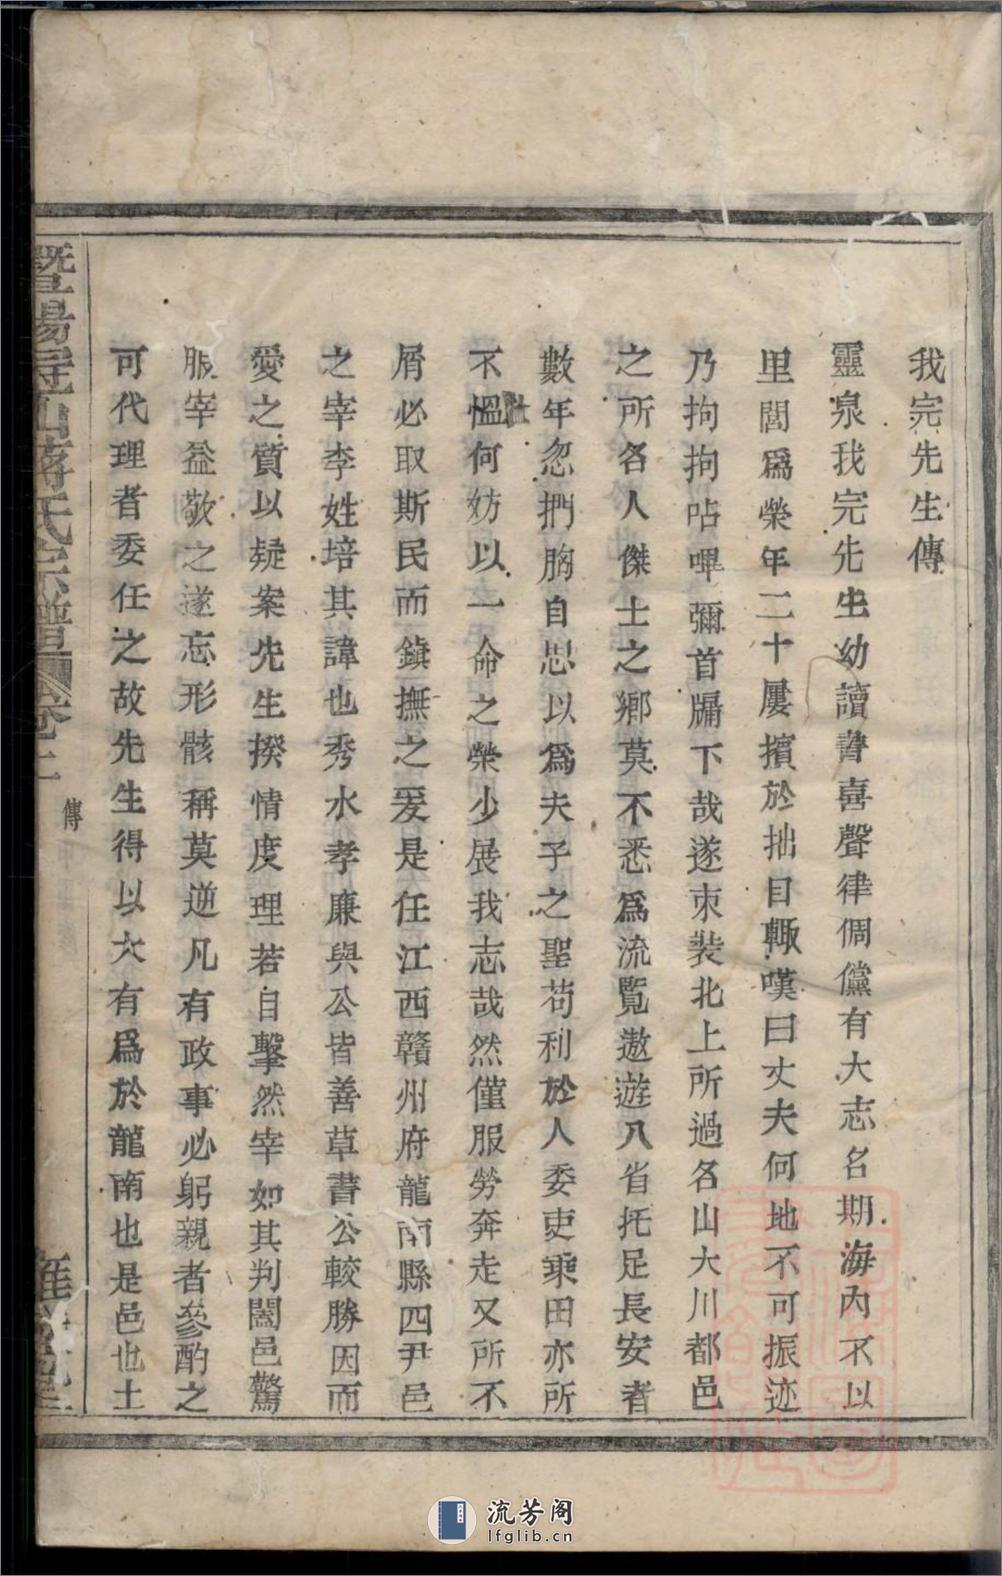 我完先生傳
靈泉我完先生幼讀書喜聲律倜儻有大志名期海內不以
里閭爲榮年二十屢擯於拙目輙嘆曰丈夫何地不可振迹
乃拘拘呫嗶彌首牖下哉遂束裝北上所過名山大川都邑
之所各人傑士之鄉莫不悉爲流覽遨遊八省托足長安者
數年忽捫胸自思以爲夫子之聖苟利於人委吏乘田亦所
不慍何妨以一命之榮少展我志哉然僅服勞奔走又所不
屑必取斯民而鎭撫之爰是任江西贛州府龍南縣四尹邑
之宰李姓培其諱也秀水孝廉與公皆善草書公較勝因而
愛之質以疑案先生揆情度理若自擊然宰如其判闔邑驚
服宰益敬之遂忘形骸稱莫逆凡有政事必躬親者參酌之
可代理者委任之故先生得以大有爲於龍南也是邑也土
暨陽 蔣氏宗譜 卷 傳
流芳阁
lfglib.cn